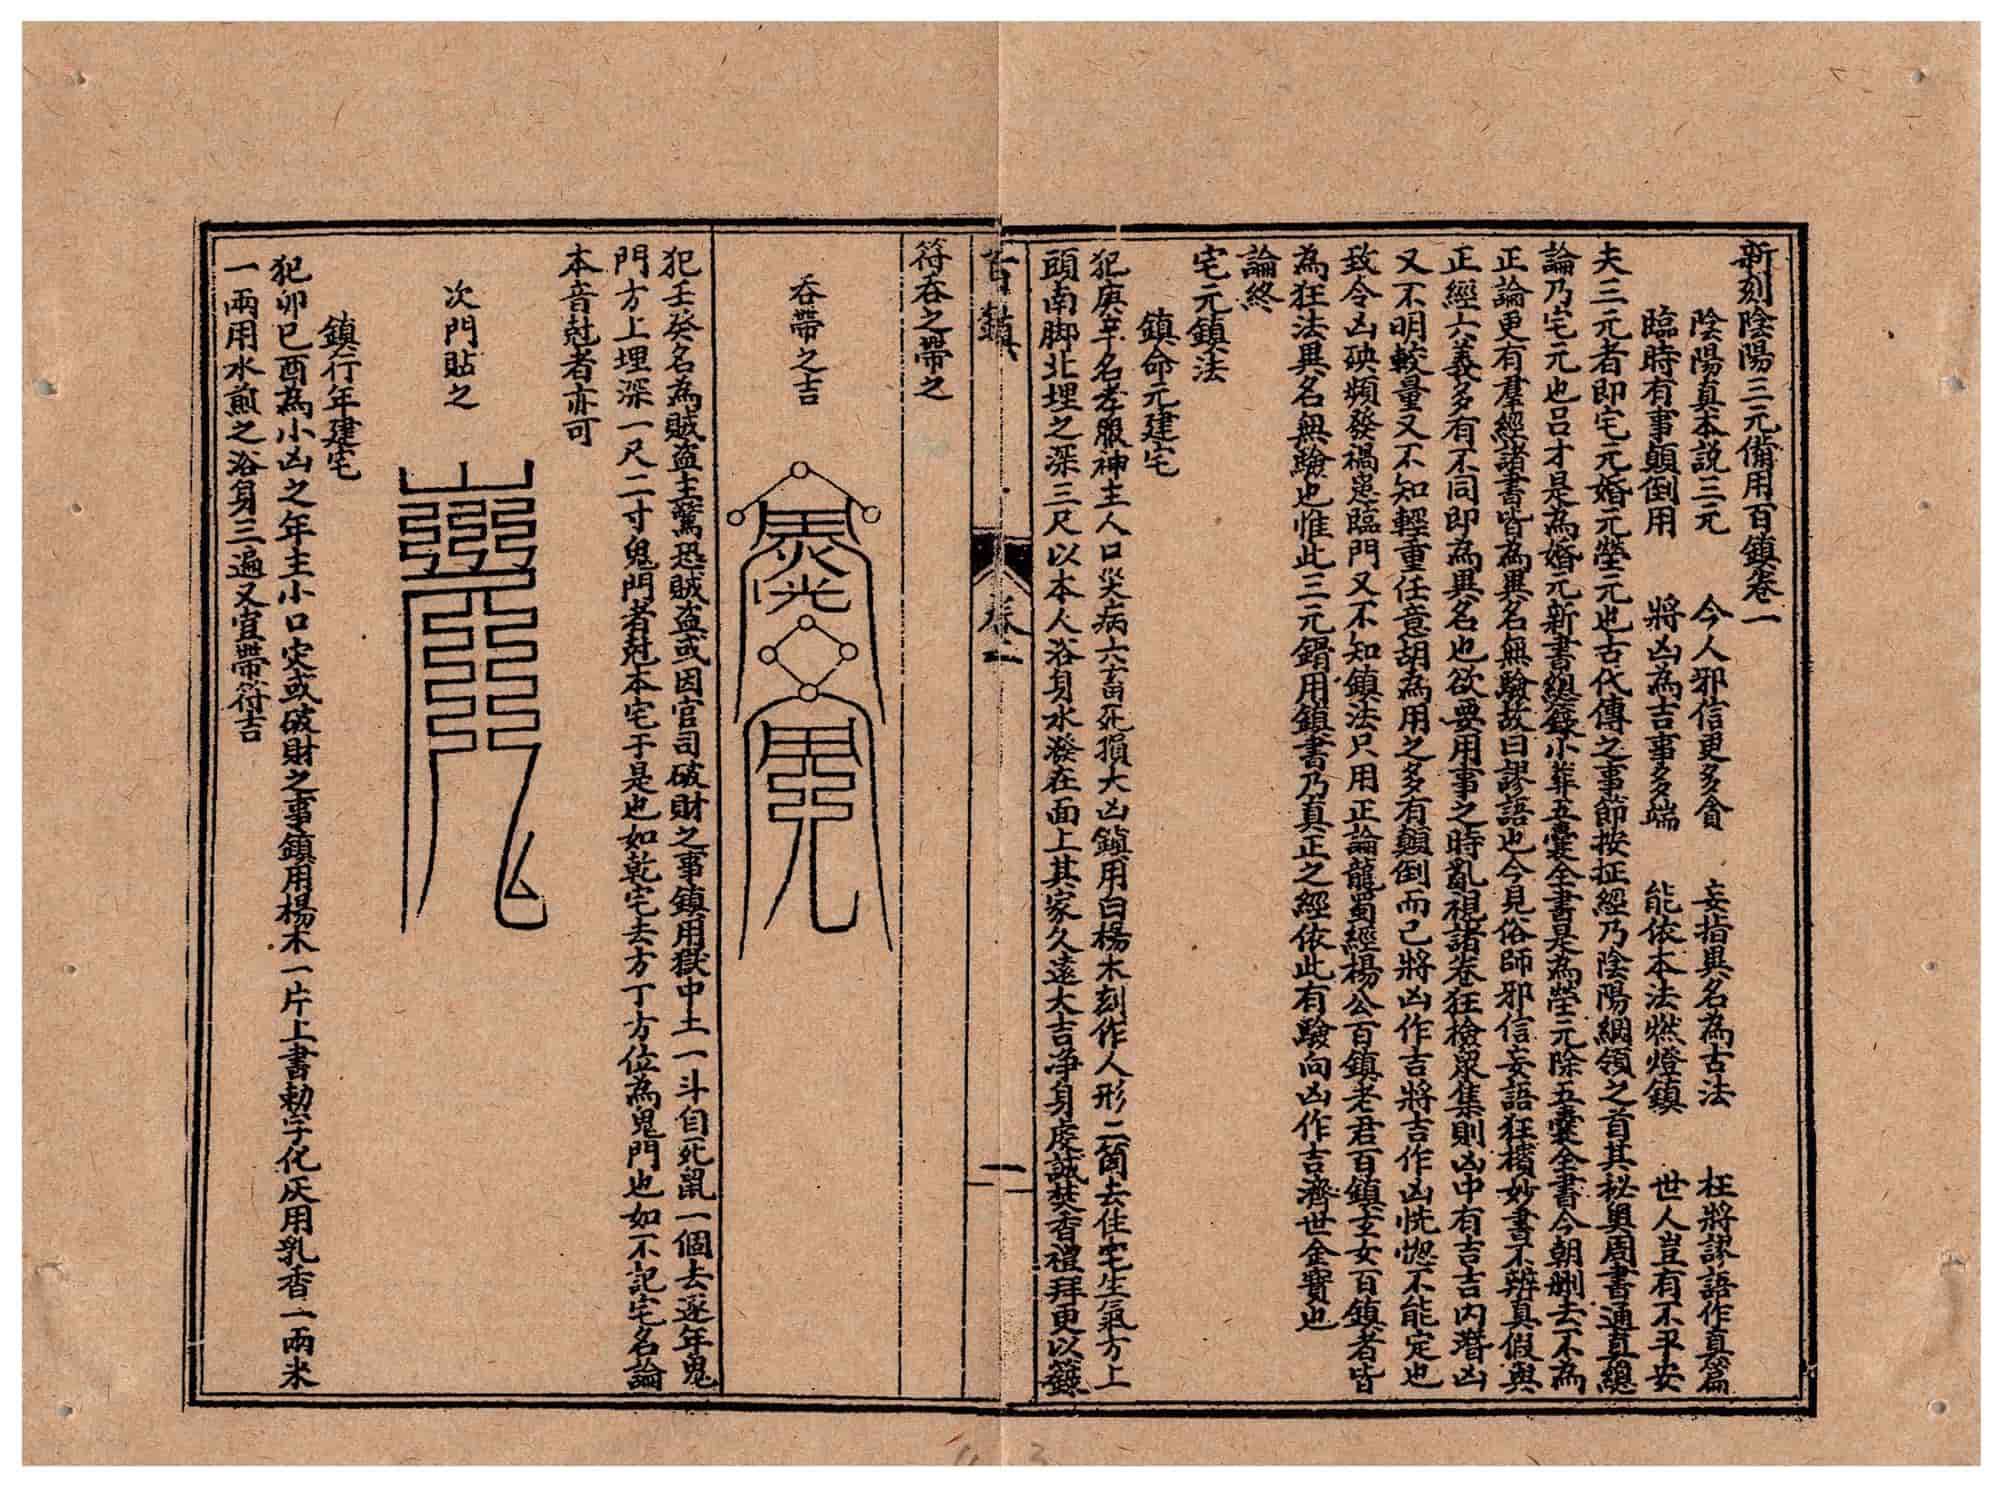 新刻陰陽三元備用百鎮卷一
陰陽真本說三元　今人邪信更多貪　妄指異名為古法　枉將謬語作真篇
臨時有事顛倒用　將凶為吉事多端　能依本法燃燈鎮　世人豈有不平安
夫三元者即宅元婚元塋元也古代傳之事節按証經乃陰陽綱領之首其秘奧周書通真總
論乃宅元也呂才是為婚元新書總錄小葬五囊全書是為塋元除五囊全書今朝刪去不為
正論更有羣經諸書皆為異名無驗故曰謬語也今見俗師邪信妄語狂擯妙書不辨真假與
正經六義多有不同即為異名也欲要用事之時亂視諸卷狂檢眾集則凶中有吉吉內潛凶
又不明較量又不知輕重任意胡為用之多有顛倒而已將凶作吉將吉作凶恍惚不能定也
致令凶殃頻發禍患臨門又不知鎮法只用正論龍蜀經楊公百鎮老君百鎮玄女百鎮者皆
為狂法異名無驗也惟此三元鎦用鎮書乃真正之經依此有驗向凶作吉濟世金寶也
論終
宅元鎮法
鎮命元建宅
犯庚辛名孝服神主人口災病六畜死損大凶鎮用白楊木刻作人形二箇去住宅生氣方上
頭南脚北埋之深三尺以本人浴身水潑在面上其家久遠大吉净身虔誠焚香禮拜更以籙
百鎮
卷一
一
符吞之帶之
吞帶之吉
犯壬癸名為賊盜主驚恐賊盜或因官司破財之事鎮用獄中土一斗自死鼠一個去逐年鬼
門方上埋深一尺二寸鬼門者尅本宅干是也如乾宅去方丁方位為鬼門也如不記宅名論
本音尅者亦可
次門貼之
鎮行年建宅
犯卯巳酉為小凶之年主小口災或破財之事鎮用楊木一片上書勅字化灰用乳香一兩米
一兩用水煎之浴身三遍又宜帶符吉